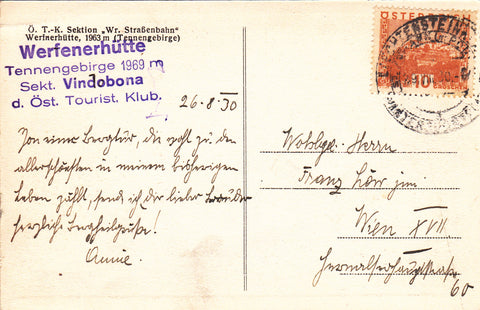 Ö. T.-K. Sektion „Wr. Straßenbahn"
Werfnerhütte, 1963 m (Tennengebirge)
Werfenerhütte
Tennengebirge 1969 m
Sekt. Vindobona
d. Öst. Tourist. Klub.
26.8.30
Von einer Bergtur, die wohl zu den
allerschönsten in meinem bisherigen
Leben zählt, send ich dir lieber Bruder
herzliche Bergheilgrüße!
Annie.
ÖSTERREICH
10
Wohlgb. Herrn
Franz Löw jun.
Wien XVII.
Hernalserhauptstraße
60